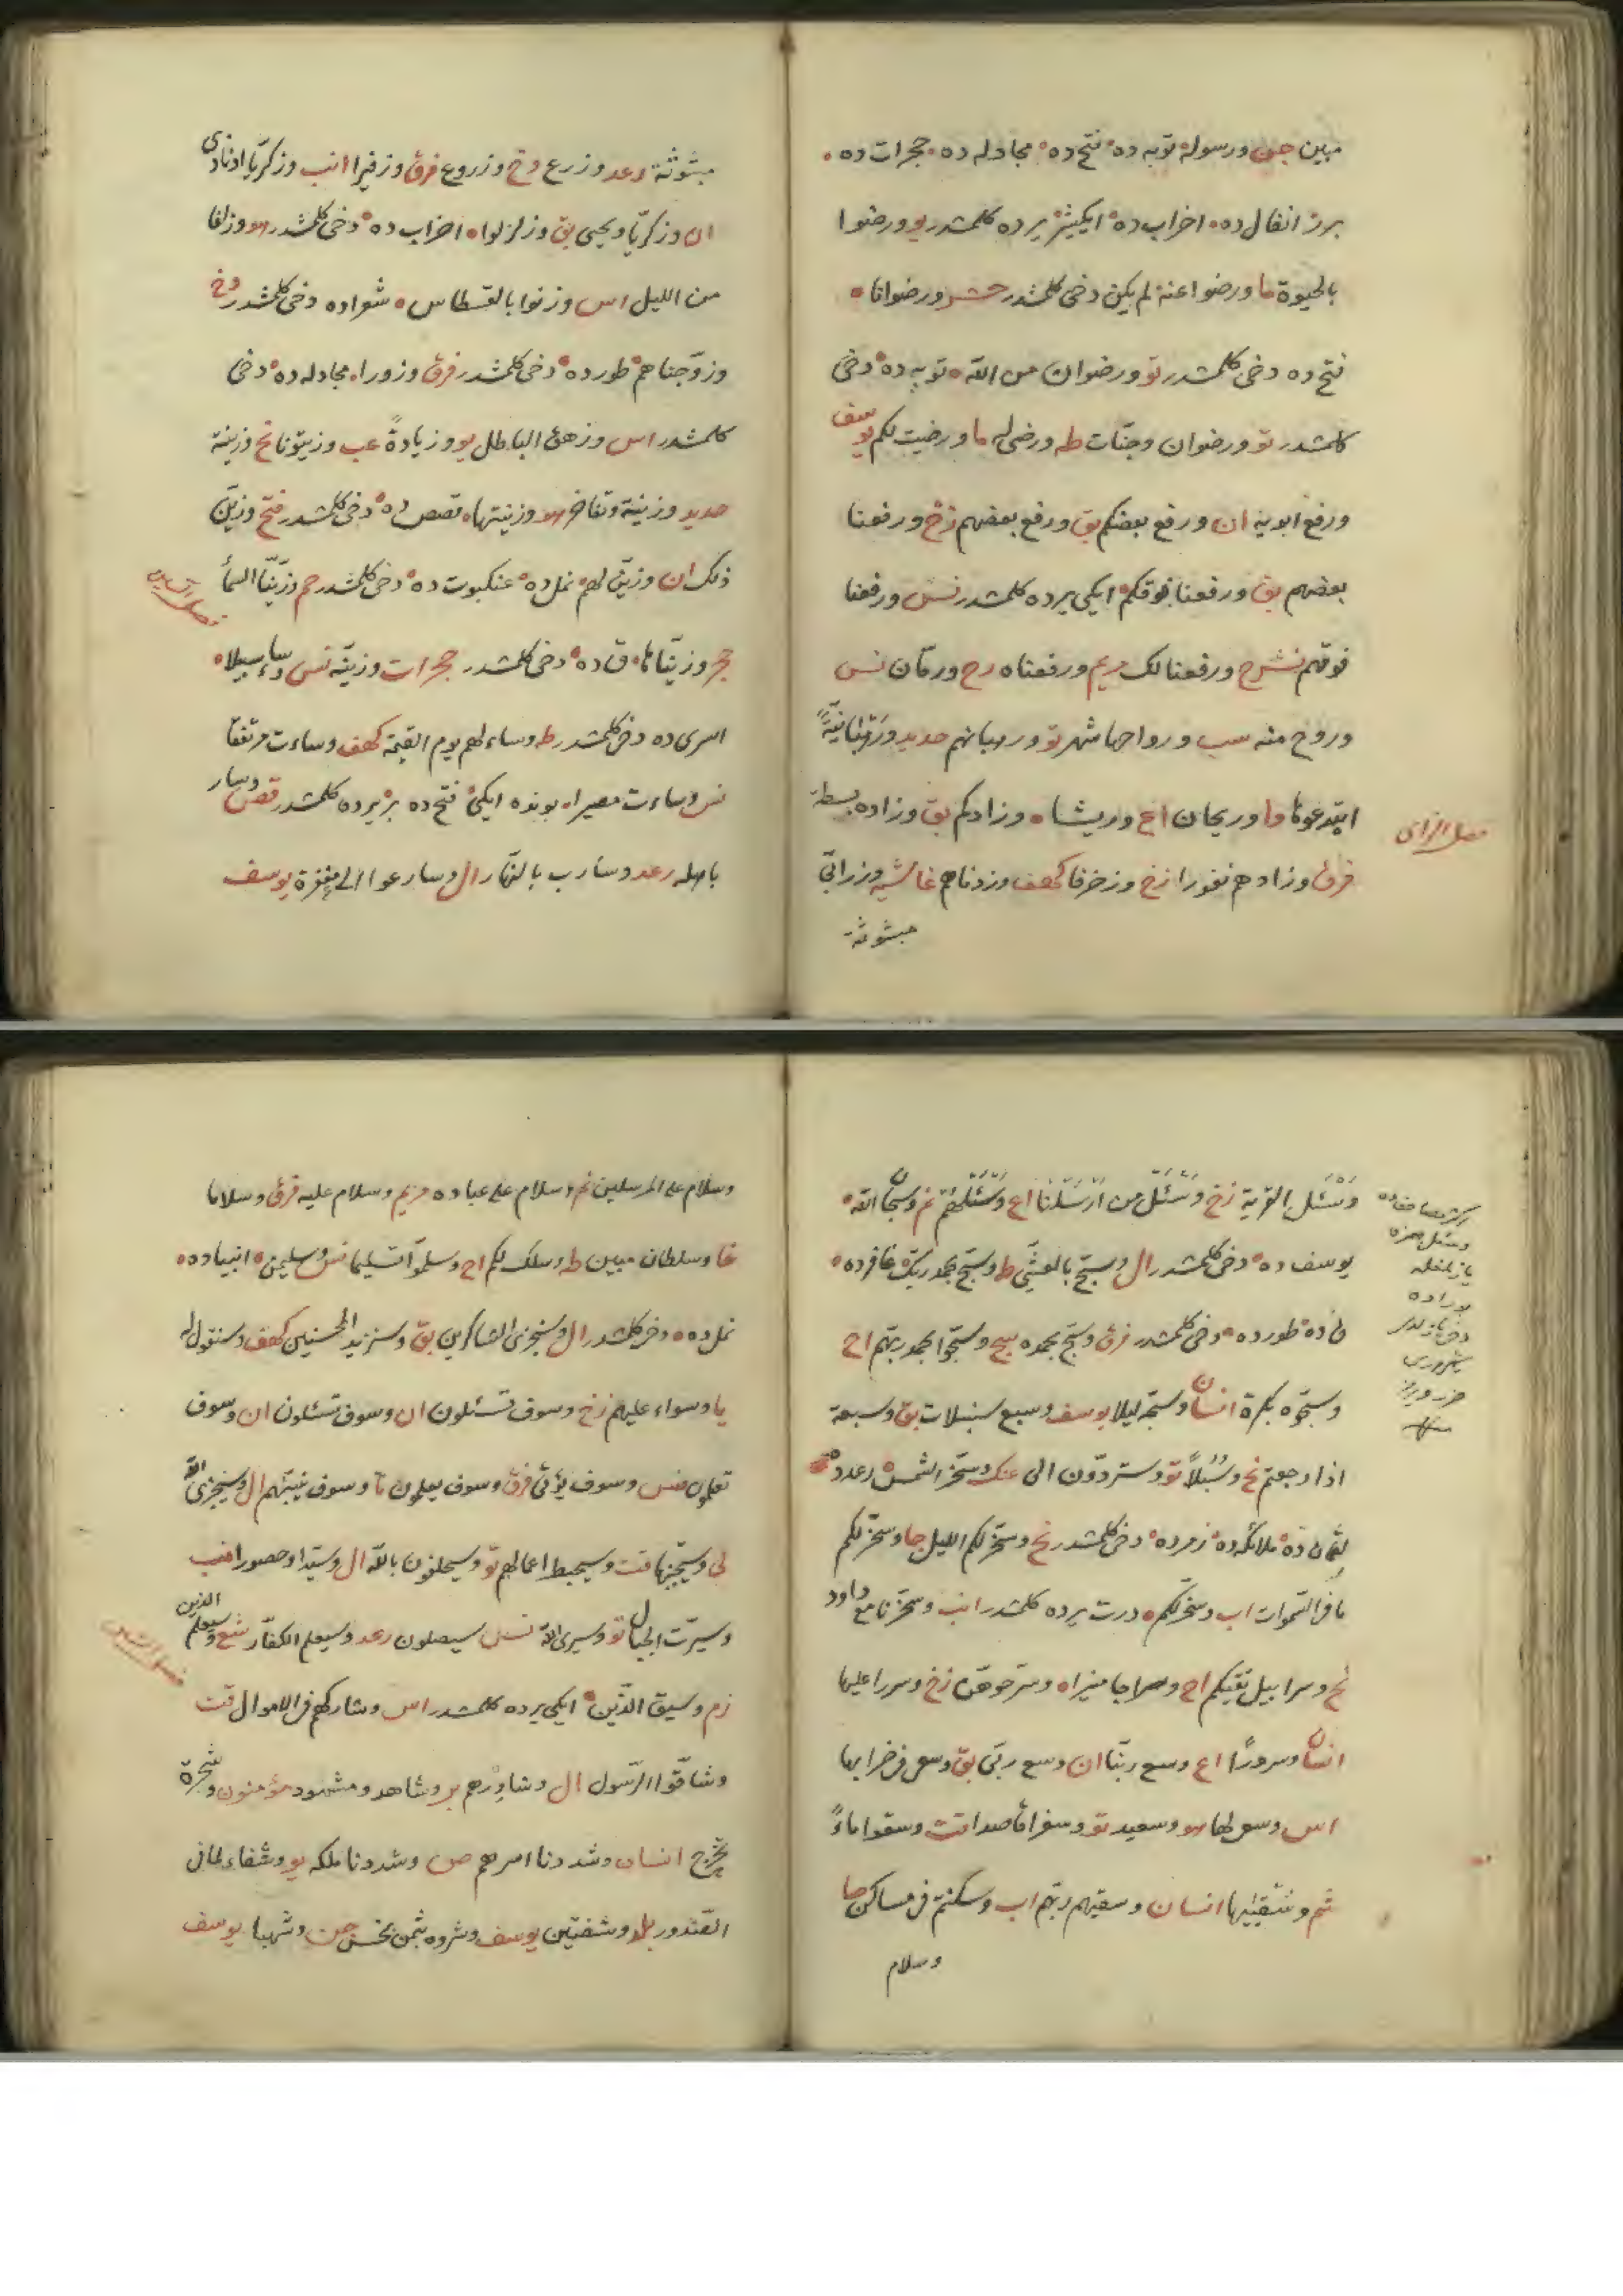 مبين جن ورسوله توبه ده فتح ده مجادله ده حجرات ده
برز انفال ده احزاب ده ايكيشر يرده كلمشدر يو ورضوا
بالحيوة ما ورضوا عنه لم يكن دخى كلمشدر حشر ورضوانا
فتح ده دخى كلمشدر تو ورضوان من الله توبه ده دخى
كلمشدر تو ورضوان وجنات طه ورضى له ما ورضيت لكم يوسف
ورفع ابويه ان ورفع بعضكم بق ورفع بعضهم زخ ورفعنا
بعضهم بق ورفعنا فوقكم ايكى يرده كلمشدر نس ورفعنا
فوقهم نشرح ورفعنا لك مريم ورفعناه رح ورمان نس
وروح منه سب ورواحها شهر تو ورهبانهم حديد ورهبانية
ابتدعوها وا وريحان اع وريشا وزادكم بق وزاده بسطة
فصل الزاى
فرق وزادهم نفورا زخ وزخرفا كهف وزدناهم غاشيه وزرابى
مبثوثة
مبثوثة رعد وزرع دخ وزروع فرق وزفيرا انب وزكريا اذ نادى
ان وزكريا ويحيى بق وزلزلوا احزاب ده دخى كلمشدر هو وزلفا
من الليل اس وزنوا بالقسطاس شعراده دخى كلمشدر دخ
وزوجناهم طور ده دخى كلمشدر فرق وزورا مجادله ده دخى
كلمشدر اس وزهق الباطل يو وزيادة عب وزيتونا نخ وزينة
حديد وزينة وتفاخر هو وزينتها قصص ده دخى كلمشدر فتح وزين
ذلك ان وزين لهم نمل ده عنكبوت ده دخى كلمشدر حم وزينا السمآ
فصل السين
حجر وزيناها ق ده دخى كلمشدر حجرات وزينه نس وساء سبيلا
اسرى ده دخى كلمشدر طه وساء لهم يوم القيمة كهف وساءت مرتفقا
نس وساءت مصيرا بونده ايكى فتح ده بر يرده كلمشدر قصص وسار
باهله رعد وسارب بالنهار ال وسارعوا الى مغفرة يوسف
وسئل القرية زخ وسئل من ارسلنا اع وسئلهم نم وسبحان الله
يوسف ده دخى كلمشدر ال وسبح بالعشى ط وسبح بحمد ربك غافر ده
ق ده طور ده دخى كلمشدر فرق وسبح بحمده سج وسبحوا بحمد ربهم اح
وسبحوه بكرة انسان وسبحه ليلا يوسف وسبع سنبلات بق وسبعة
اذا رجعتم نخ وسبلاً تو وستردون الى عنك وسخر الشمس رعد ده
لقمان ده ملائكه ده زمر ده دخى كلمشدر نخ وسخر لكم الليل جا وسخر لكم
ما فى السموات اب وسخر لكم درت يرده كلمشدر انب وسخرنا مع داود
نخ وسرابيل تقيكم اح وسراجا منيرا وسرحوهن زخ وسررا عليها
انسان وسرورًا اع وسع ربنا ان وسع ربى بق وسعى فى خرابها
اس وسعى لها هو وسعيد تو وسفرا قاصدا قت وسقوا ماءً
ثم وسقيها انسان وسقيهم ربهم اب وسكنتم فى مساكن صا
وسلام
وسلام على المرسلين نم وسلام على عباده مريم وسلام عليه فرق وسلاما
غا وسلطان مبين طه وسلك لكم اح وسلموا تسليما نس وسليمن انبياده
نمل ده دخى كلمشدر ال وسنجزى الشاكرين بق وسنزيد المحسنين كهف وسنقول له
يا وسواء عليهم زخ وسوف تسئلون ان وسوف تسئلون ان وسوف
تعلمون نس وسوف يؤتى فرق وسوف يعلمون ما وسوف ينبئهم ال وسيجزى الله
لى وسيجنبها قت وسيحبط اعمالهم تو وسيحلفون بالله ال وسيدا وحصورا انب
وسيرت الجبال تو وسيرى الله نس سيصلون رعد وسيعلم الكفار شع وسيعلم الذين
فصل الشين
زم وسيق الذين ايكى يرده كلمشدر اس وشاركهم فى الاموال قت
وشاقوا الرسول ال وشاورهم بر وشاهد ومشهود مؤمنون وشجرة
تخرج انسان وشددنا اسرهم ص وشددنا ملكه يو وشفاء لما فى
الصدور بلد وشفتين يوسف وشروه بثمن بخس جن وشهبا يوسف